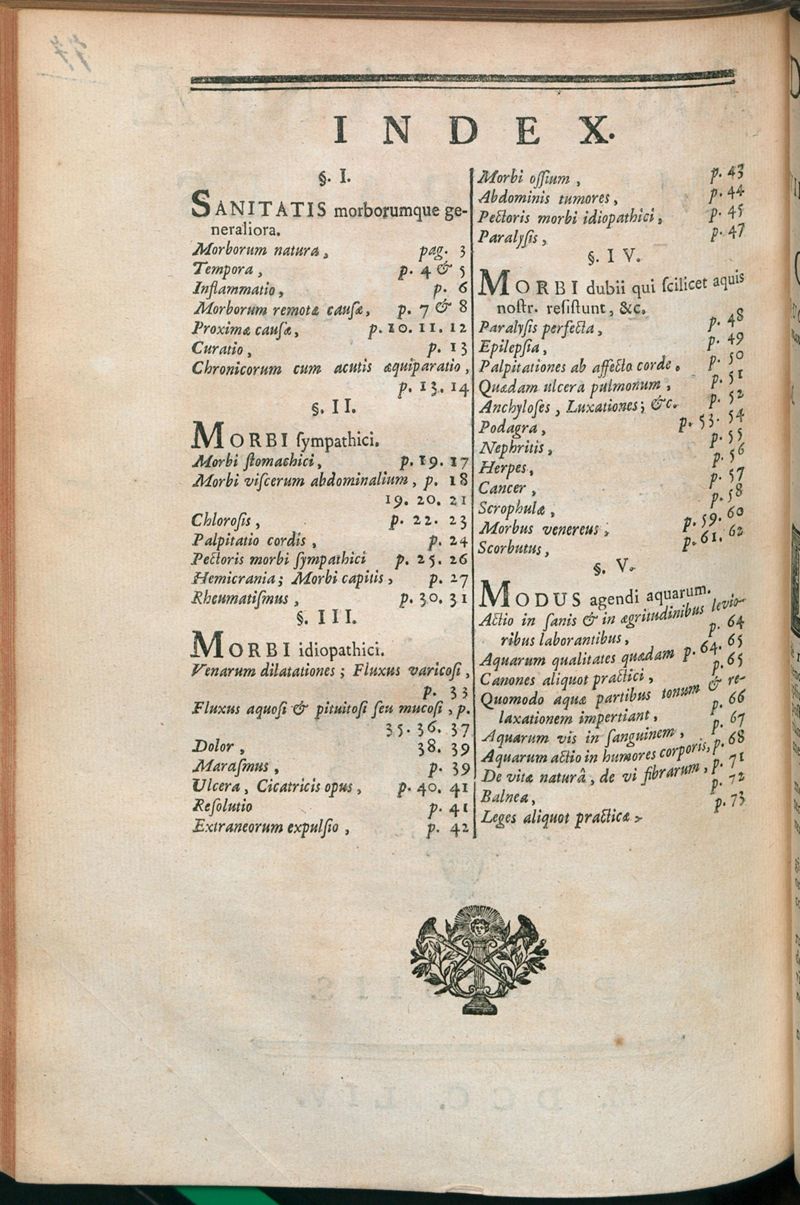 INDEX.
§. I.
SANITATIS morborumque ge-
neraliora.
Morborum natura, pag. 3
Tempora, p. 4 & 5
Inflammatio, p. 6
Morborum remotæ causæ, p. 7 & 8
Proximæ causæ, p. 10. 11. 12
Curatio, p. 13
Chronicorum cum acutis æquiparatio,
p. 13. 14
§. II.
MORBI sympathici.
Morbi stomachici, p. 19. 17
Morbi viscerum abdominalium, p. 18
19. 20. 21
Chlorosis, p. 22. 23
Palpitatio cordis, p. 24
Pectoris morbi sympathici p. 25. 26
Hemicrania; Morbi capitis, p. 27
Rheumatismus, p. 30. 31
§. III.
MORBI idiopathici.
Venarum dilatationes; Fluxus varicosi,
p. 33
Fluxus aquosi & pituitosi seu mucosi, p.
35. 36. 37
Dolor, 38. 39
Marasmus, p. 39
Ulcera, Cicatricis opus, p. 40. 41
Resolutio p. 41
Extraneorum expulsio, p. 42
Morbi ossium, p. 43
Abdominis tumores, p. 44
Pectoris morbi idiopathici, p. 45
Paralysis, p. 47
§. IV.
MORBI dubii qui scilicet aquis
nostr. resistunt, &c.
Paralysis perfecta, p. 48
Epilepsia, p. 49
Palpitationes ab affecto corde. p. 50
Quædam ulcera pulmonum, p. 51
Anchyloses, Luxationes; &c. p. 52
Podagra, p. 53. 54
Nephritis, p. 55
Herpes, p. 56
Cancer, p. 57
Scrophulæ, p. 58
Morbus venereus, p. 59. 60
Scorbutus, p. 61. 62
§. V.
MODUS agendi aquarum.
Actio in sanis & in ægritudinibus levio-
ribus laborantibus, p. 64
Aquarum qualitates quædam p. 64. 65
Canones aliquot practici, p. 65
Quomodo aquæ partibus tonum & re-
laxationem impertiant, p. 66
Aquarum vis in sanguinem, p. 67
Aquarum actio in humores corporis, p. 68
De vitæ naturâ, de vi fibrarum, p. 71
Balnea, p. 72
Leges aliquot practicæ, p. 73